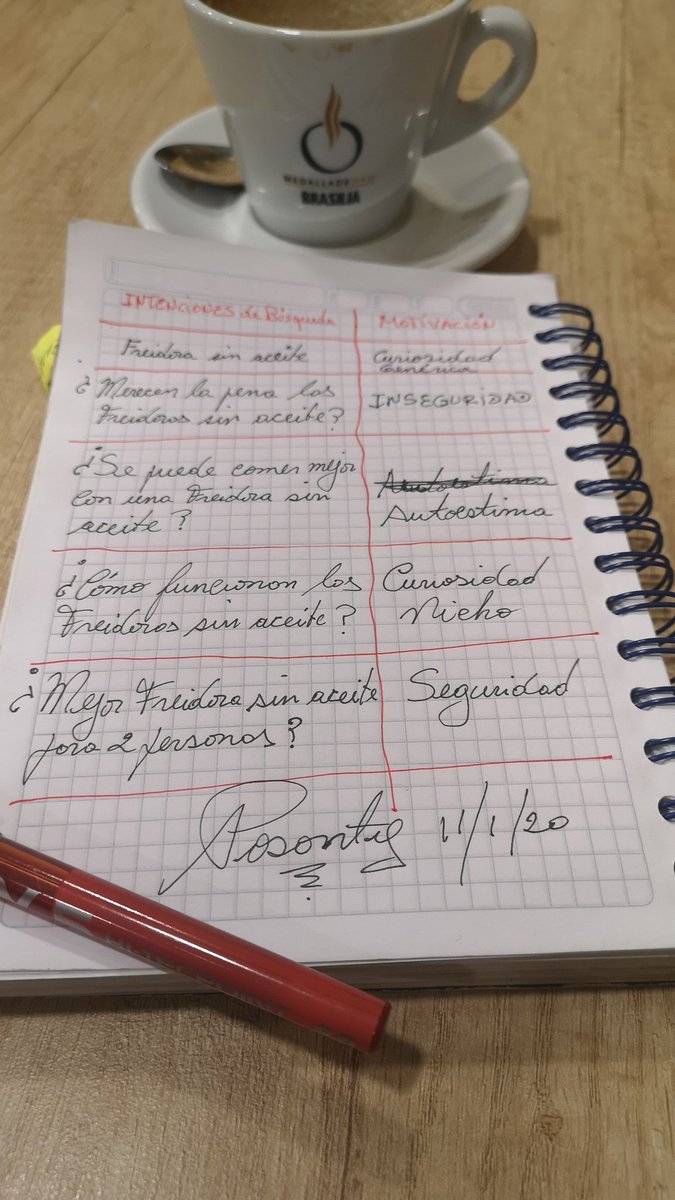 MEDALLA DE ORO
BRASILIA
INTENCIONES de Búsqueda
MOTIVACIÓN
Freidora sin aceite
Curiosidad
Genérica
¿Merecen la pena las
Freidoras sin aceite?
INSEGURIDAD
¿Se puede comer mejor
con una Freidora sin
aceite?
Autoestima
Autoestima
¿Cómo funcionan las
Freidoras sin aceite?
Curiosidad
Nicho
¿Mejor Freidora sin aceite
para 2 personas?
Seguridad
11/1/20